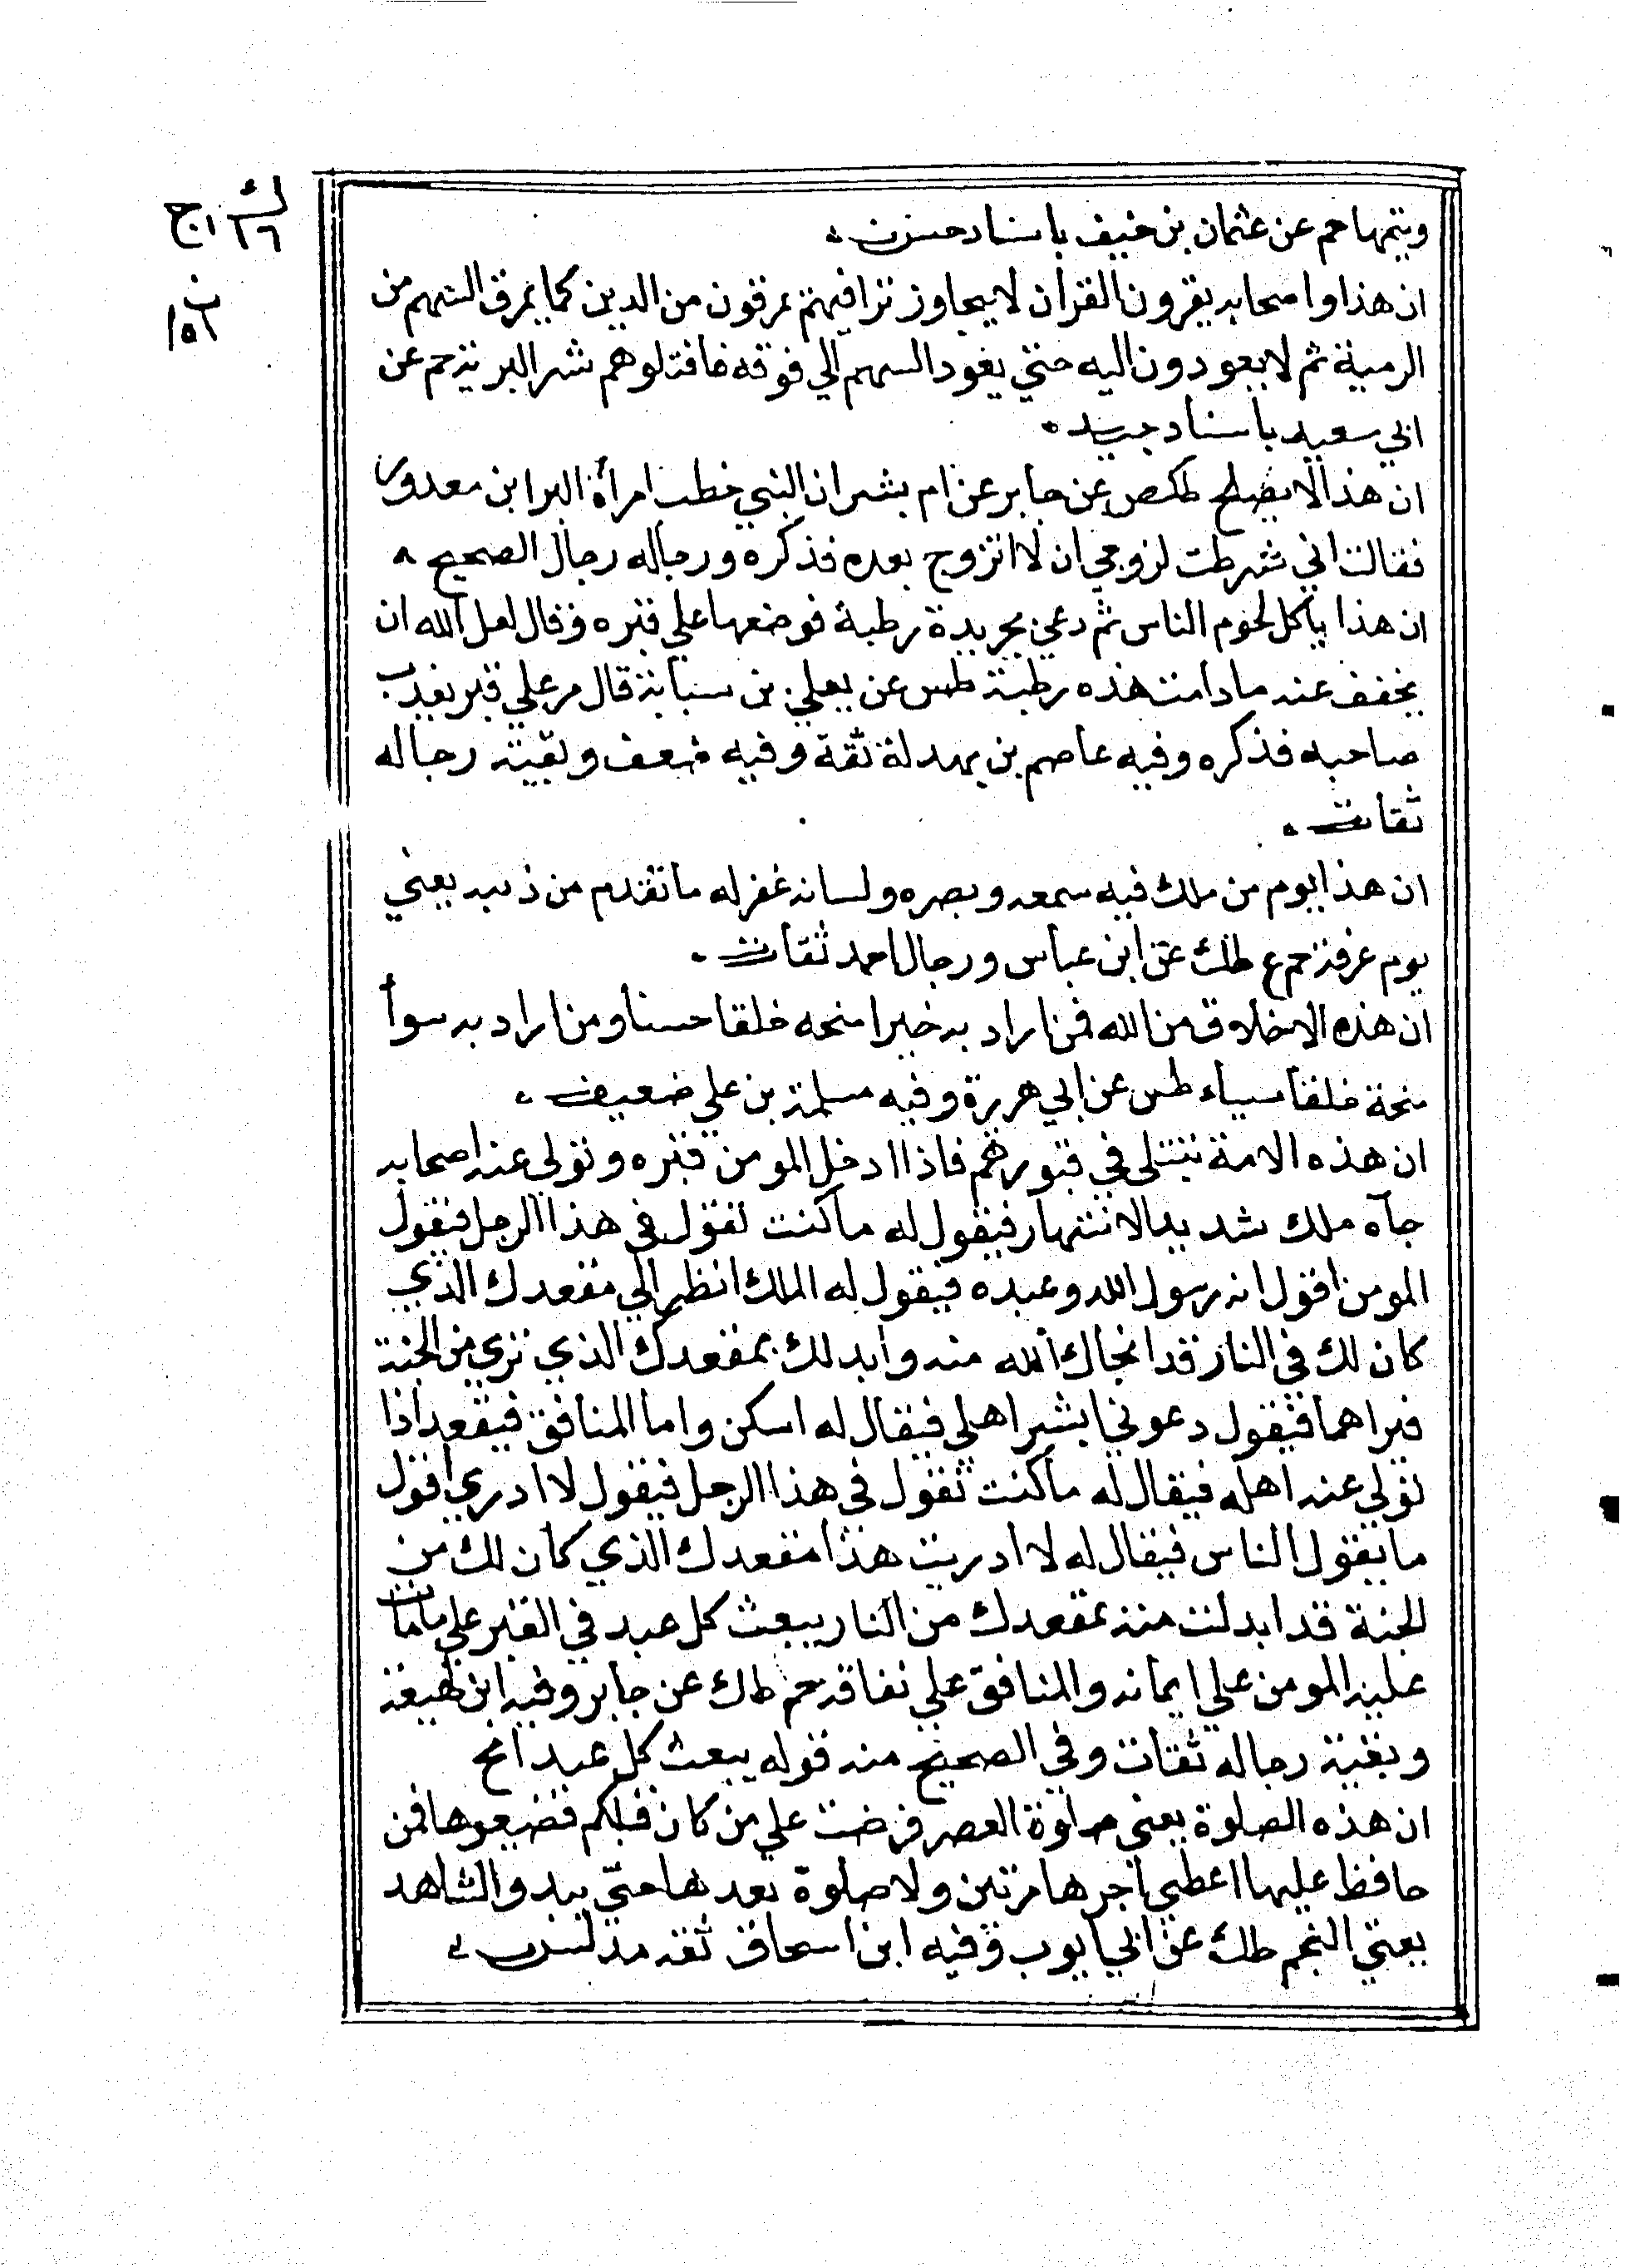 ويتمها حم عن عثمان بن حنيف باسناد حسن
ان هذا واصحابه يقرون القران لا يجاوز تراقيهم يمرقون من الدين كما يمرق السهم من
الرمية ثم لا يعودون اليه حتي يعود السهم الي فوقه فاقتلوهم شر البرية حم عن
ابي سعيد باسناد جيد
ان هذا لا يصلح طكص عن جابر عن ام بشر ان النبي خطب امرأة البرا ابن معرور
فقالت اني شرطت لزوجي ان لا اتزوج بعده فذكره ورجاله رجال الصحيح
ان هذا ياكل لحوم الناس ثم دعي بجريدة رطبة فوضعها علي قبره وقال لعل الله ان
يخفف عنه ما دامت هذه رطبة طس عن يعلي بن سبابة قال مر علي قبر يعذب
صاحبه فذكره وفيه عاصم بن بهدلة ثقة وفيه ضعف وبقية رجاله
ثقات
ان هذا يوم من ملك فيه سمعه وبصره ولسانه غفر له ما تقدم من ذنبه يعني
يوم عرفة حم ع طك عن ابن عباس ورجال احمد ثقات
ان هذه الاخلاق من الله فمن اراد به خيرا منحه خلقا حسنا ومن اراد به سوأ
منحة خلقا سياء طس عن ابي هريرة وفيه مسلمة بن علي ضعيف
ان هذه الامة تبتلى في قبورهم فاذا ادخل المومن قبره وتولي عنه اصحابه
جآه ملك شديد الانتهار فيقول له ما كنت تقول في هذا الرجل فيقول
المومن اقول انه رسول الله وعبده فيقول له الملك انظر الي مقعدك الذي
كان لك في النار قد انجاك الله منه وابدلك بمقعدك الذي تري من الجنة
فيراهما فيقول دعوني ابشر اهلي فيقال له اسكن واما المنافق فيقعد اذا
تولي عنه اهله فيقال له ما كنت تقول في هذا الرجل فيقول لا ادري اقول
ما يقول الناس فيقال له لا ادريت هذا مقعدك الذي كان لك من
الجنة قد ابدلت منه بمقعدك من النار يبعث كل عبد في القبر علي ما مات
عليه المومن علي ايمانه والمنافق علي نفاقه حم طك عن جابر وفيه ابن لهيعة
وبقية رجاله ثقات وفي الصحيح منه قوله يبعث كل عبد الخ
ان هذه الصلوة يعني صلوة العصر فرضت علي من كان قبلكم فضيعوها فمن
حافظ عليها اعطي اجرها مرتين ولا صلوة بعدها حتي يبدو الشاهد
يعني النجم طك عن ابي ايوب وفيه ابن اسحاق ثقه مدلس